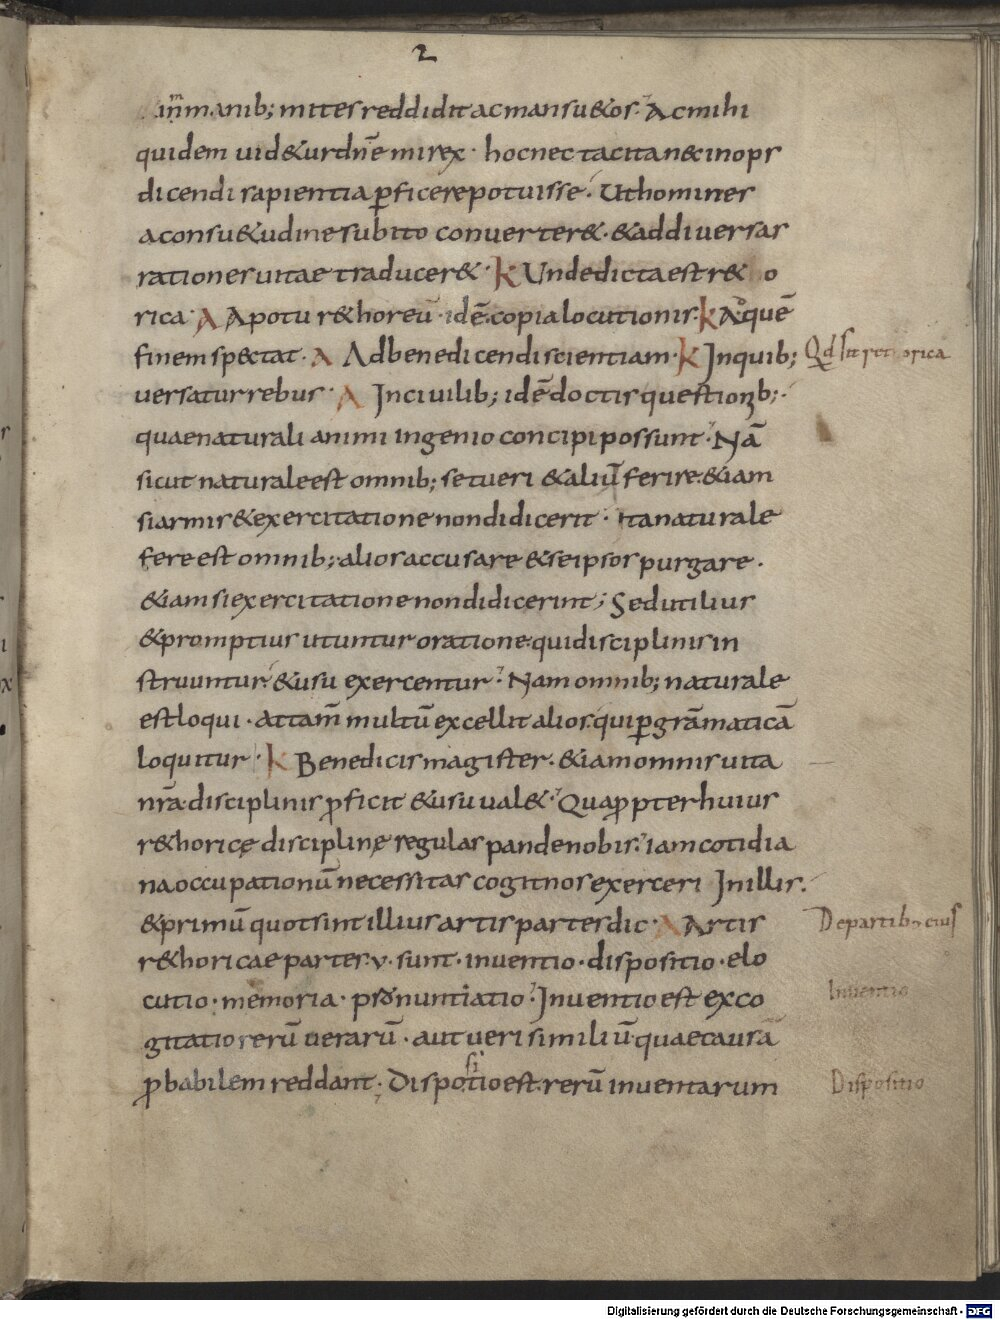 2
inmanib; mites reddidit ac mansu&os· Ac mihi
quidem uid&ur dn̄e mi rex· hoc nec tacita n&inops
dicendi sapientia ꝑficere potuisse· Ut homines
a consu&udine subito conuerter&· & ad diuersas
rationes uitae traducer&· k Unde dicta est r&o
rica· A Apotu r&horeū· idē copia locutionis· k Ad quē
finem spectat· A Ad bene dicendi scientiam· k In quib;
uersatur rebus· A In ciuilib; idē doctis questionꝝb;·
quae naturali animi ingenio concipi possunt· Nā
sicut naturale est omnib; se tueri & aliū ferire· &iam
si armis & exercitatione non didicerit· ita naturale
fere est omnib; alios accusare & se ipsos purgare·
&iam si exercitatione non didicerint; Sed utilius
& promptius utuntur oratione· qui disciplinis in
struuntur· & usu exercentur· Nam omnib; naturale
est loqui· attam̄ multū excellit alios· qui ꝑ grāmaticā
loquitur· k Benedicis magister· &iam omnis uita
nrā disciplinis ꝓficit & usu ual&· Quaꝓpter huius
r&horicę disciplinę regulas pande nobis· iam cotidia
na occupationū necessitas cogit nos exerceri In illis·
& primū quot sint illius artis partes dic· A Artis
r&horicae partes v· sunt· inuentio· dispositio· elo
cutio· memoria· pronuntiatio· Inuentio est exco
gitatio rerū uerarū· aut ueri similiū· quae causā
ꝓbabilem reddant; Dispo si tio est· rerū inuentarum
Qd sit rethorica
De partib; eius
Inuentio
Dispositio
Digitalisierung gefördert durch die Deutsche Forschungsgemeinschaft - DFG